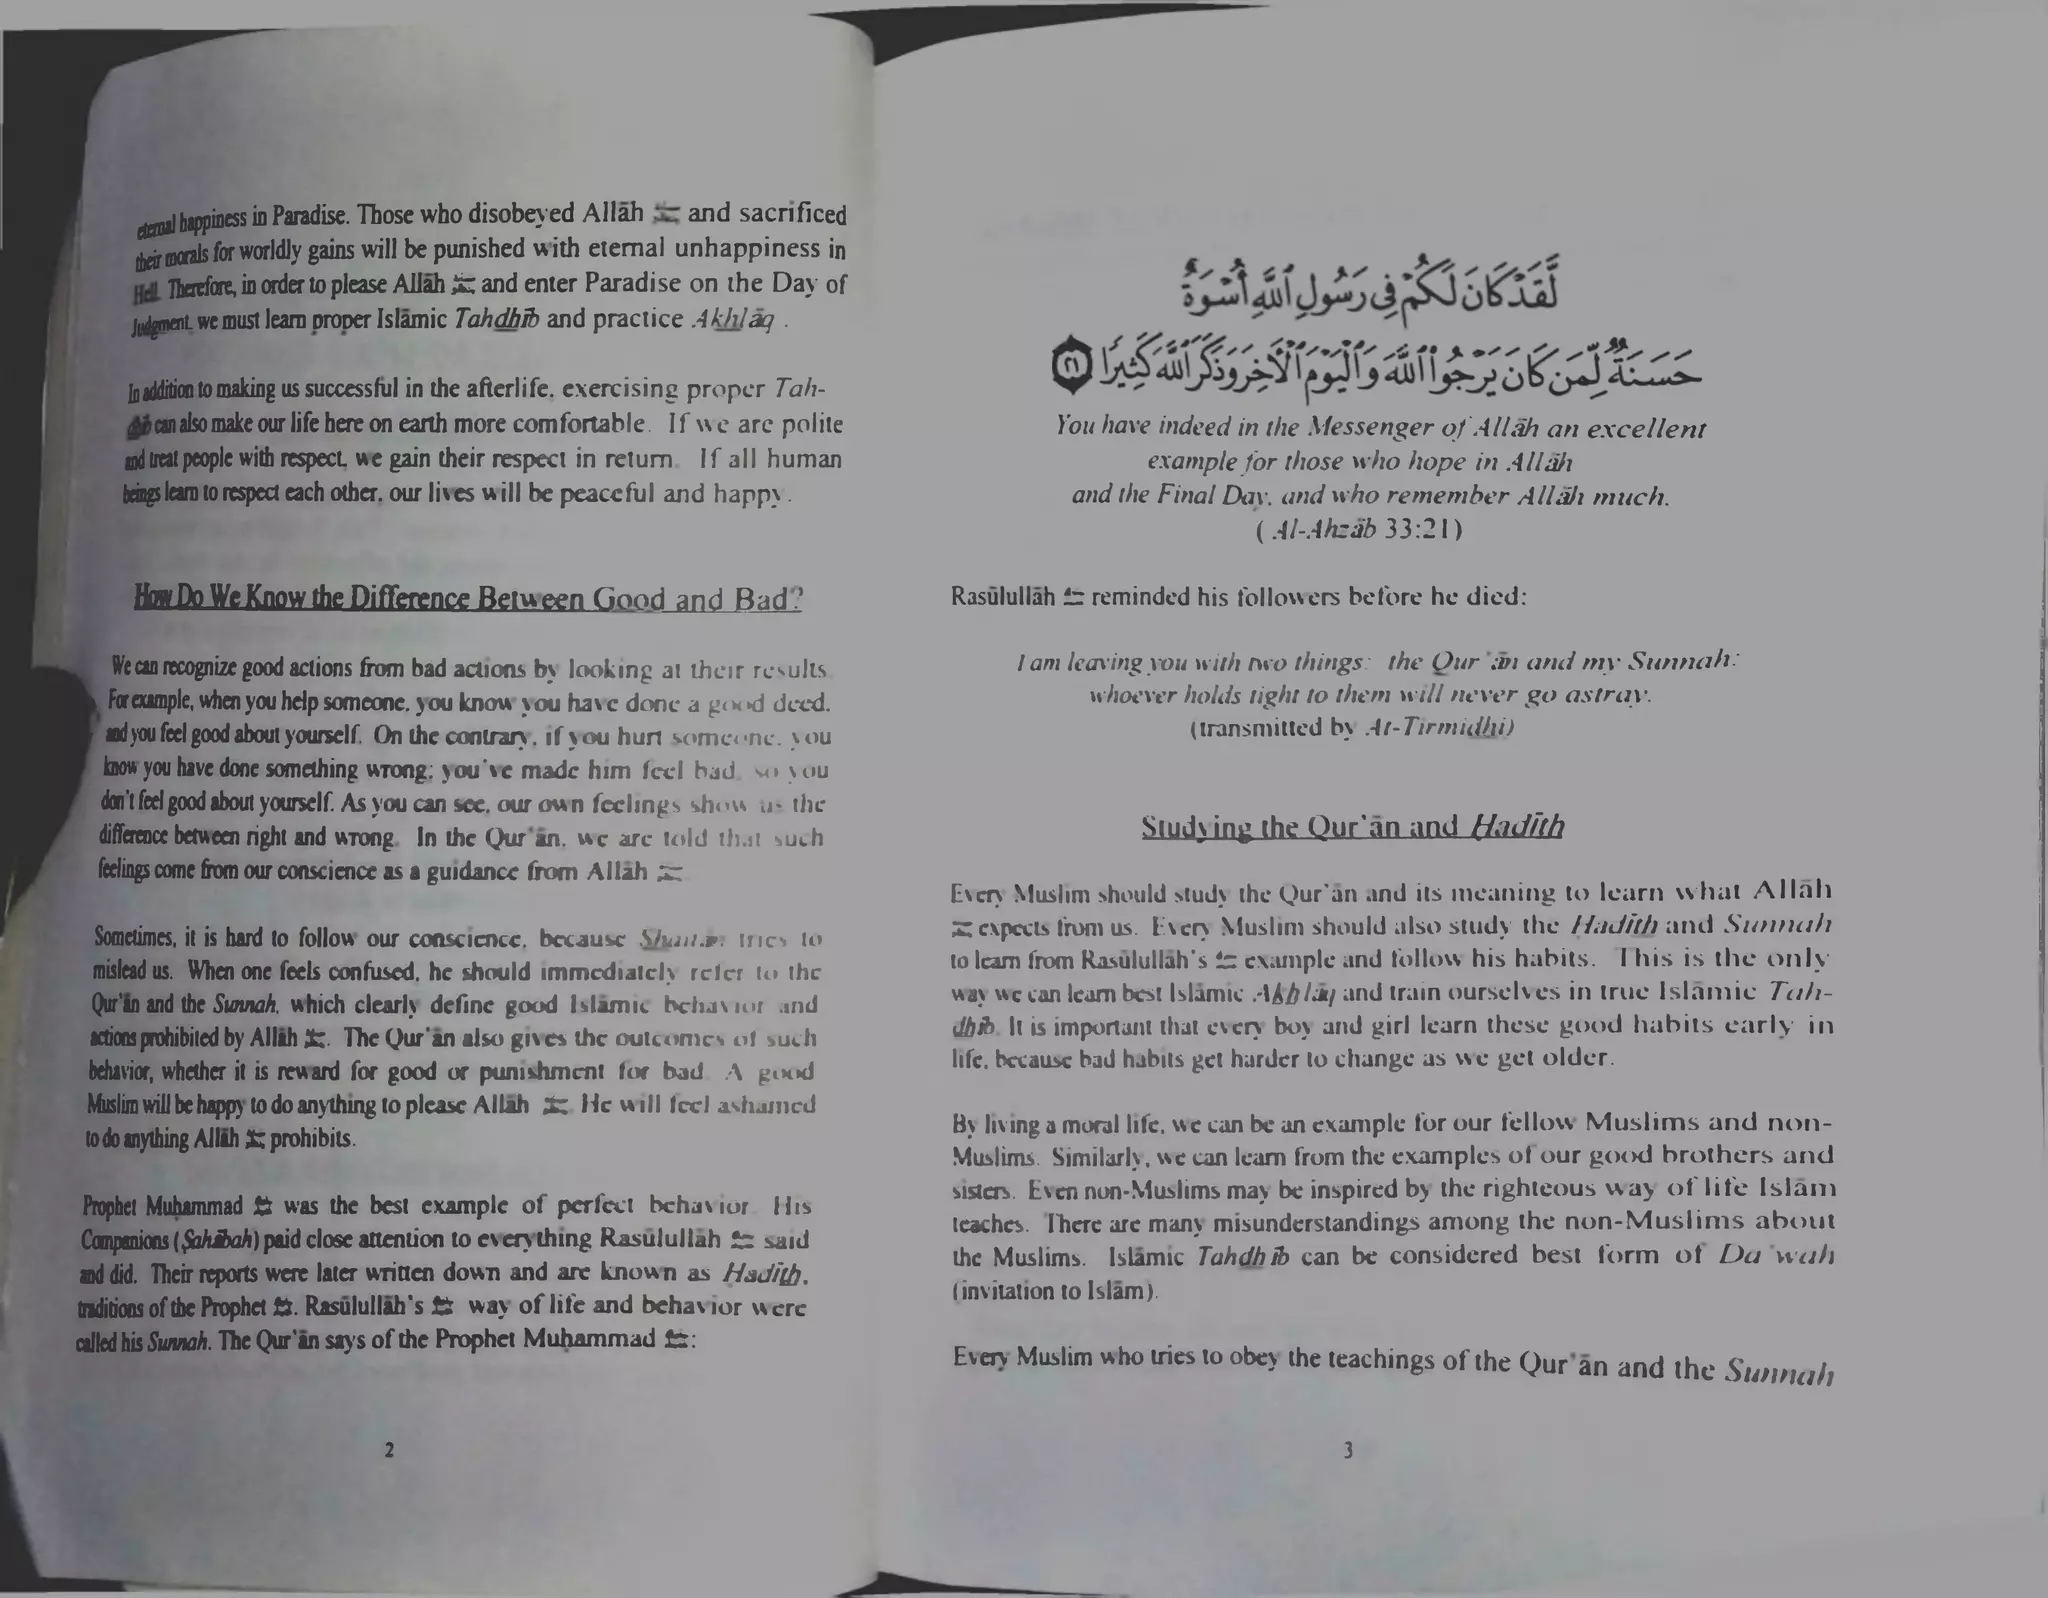 eternal happiness in Paradise. Those who disobeyed Allāh and sacrificed
their morals for worldly gains will be punished with eternal unhappiness in
Hell. Therefore, in order to please Allāh and enter Paradise on the Day of
Judgment, we must learn proper Islāmic Tahdhīb and practice Akhlāq .
In addition to making us successful in the afterlife, exercising proper Tah-
dhīb can also make our life here on earth more comfortable. If we are polite
and treat people with respect, we gain their respect in return. If all human
beings learn to respect each other, our lives will be peaceful and happy.
How Do We Know the Difference Between Good and Bad?
We can recognize good actions from bad actions by looking at their results.
For example, when you help someone, you know you have done a good deed,
and you feel good about yourself. On the contrary, if you hurt someone, you
know you have done something wrong; you've made him feel bad, so you
don't feel good about yourself. As you can see, our own feelings show us the
difference between right and wrong. In the Qur'ān, we are told that such
feelings come from our conscience as a guidance from Allāh
Sometimes, it is hard to follow our conscience, because Shaitān tries to
mislead us. When one feels confused, he should immediately refer to the
Qur'ān and the Sunnah, which clearly define good Islāmic behavior and
actions prohibited by Allāh ﷻ. The Qur'ān also gives the outcomes of such
behavior, whether it is reward for good or punishment for bad. A good
Muslim will be happy to do anything to please Allāh ﷻ. He will feel ashamed
to do anything Allāh ﷻ prohibits.
Prophet Muḥammad ﷺ was the best example of perfect behavior. His
Companions (Ṣahābah) paid close attention to everything Rasūlullāh ﷺ said
and did. Their reports were later written down and are known as Ḥadīth,
traditions of the Prophet ﷺ. Rasūlullāh's ﷺ way of life and behavior were
called his Sunnah. The Qur'ān says of the Prophet Muḥammad ﷺ:
2
لَّقَدْ كَانَ لَكُمْ فِى رَسُولِ ٱللَّهِ أُسْوَةٌ
حَسَنَةٌ لِّمَن كَانَ يَرْجُوا۟ ٱللَّهَ وَٱلْيَوْمَ ٱلْآخِرَ وَذَكَرَ ٱللَّهَ كَثِيرًا ٢١
You have indeed in the Messenger of Allāh an excellent
example for those who hope in Allāh
and the Final Day, and who remember Allāh much.
( Al-Ahzāb 33:21)
Rasūlullāh ﷺ reminded his followers before he died:
I am leaving you with two things: the Qur'ān and my Sunnah:
whoever holds tight to them will never go astray.
(transmitted by At-Tirmidhi)
Studying the Qur'ān and Ḥadīth
Every Muslim should study the Qur'ān and its meaning to learn what Allāh
ﷻ expects from us. Every Muslim should also study the Ḥadīth and Sunnah
to learn from Rasūlullāh's ﷺ example and follow his habits. This is the only
way we can learn best Islāmic Akhlāq and train ourselves in true Islāmic Tah-
dhīb. It is important that every boy and girl learn these good habits early in
life, because bad habits get harder to change as we get older.
By living a moral life, we can be an example for our fellow Muslims and non-
Muslims. Similarly, we can learn from the examples of our good brothers and
sisters. Even non-Muslims may be inspired by the righteous way of life Islām
teaches. There are many misunderstandings among the non-Muslims about
the Muslims. Islāmic Tahdhīb can be considered best form of Da'wah
(invitation to Islām).
Every Muslim who tries to obey the teachings of the Qur'ān and the Sunnah
3